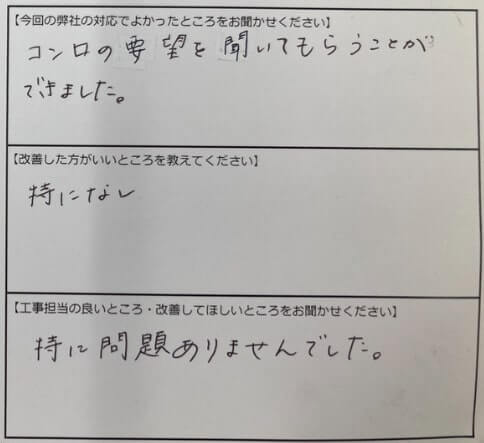 【今回の弊社の対応でよかったところをお聞かせください】
コンロの要望を聞いてもらうことが
できました。
【改善した方がいいところを教えてください】
特になし
【工事担当の良いところ・改善してほしいところをお聞かせください】
特に問題ありませんでした。